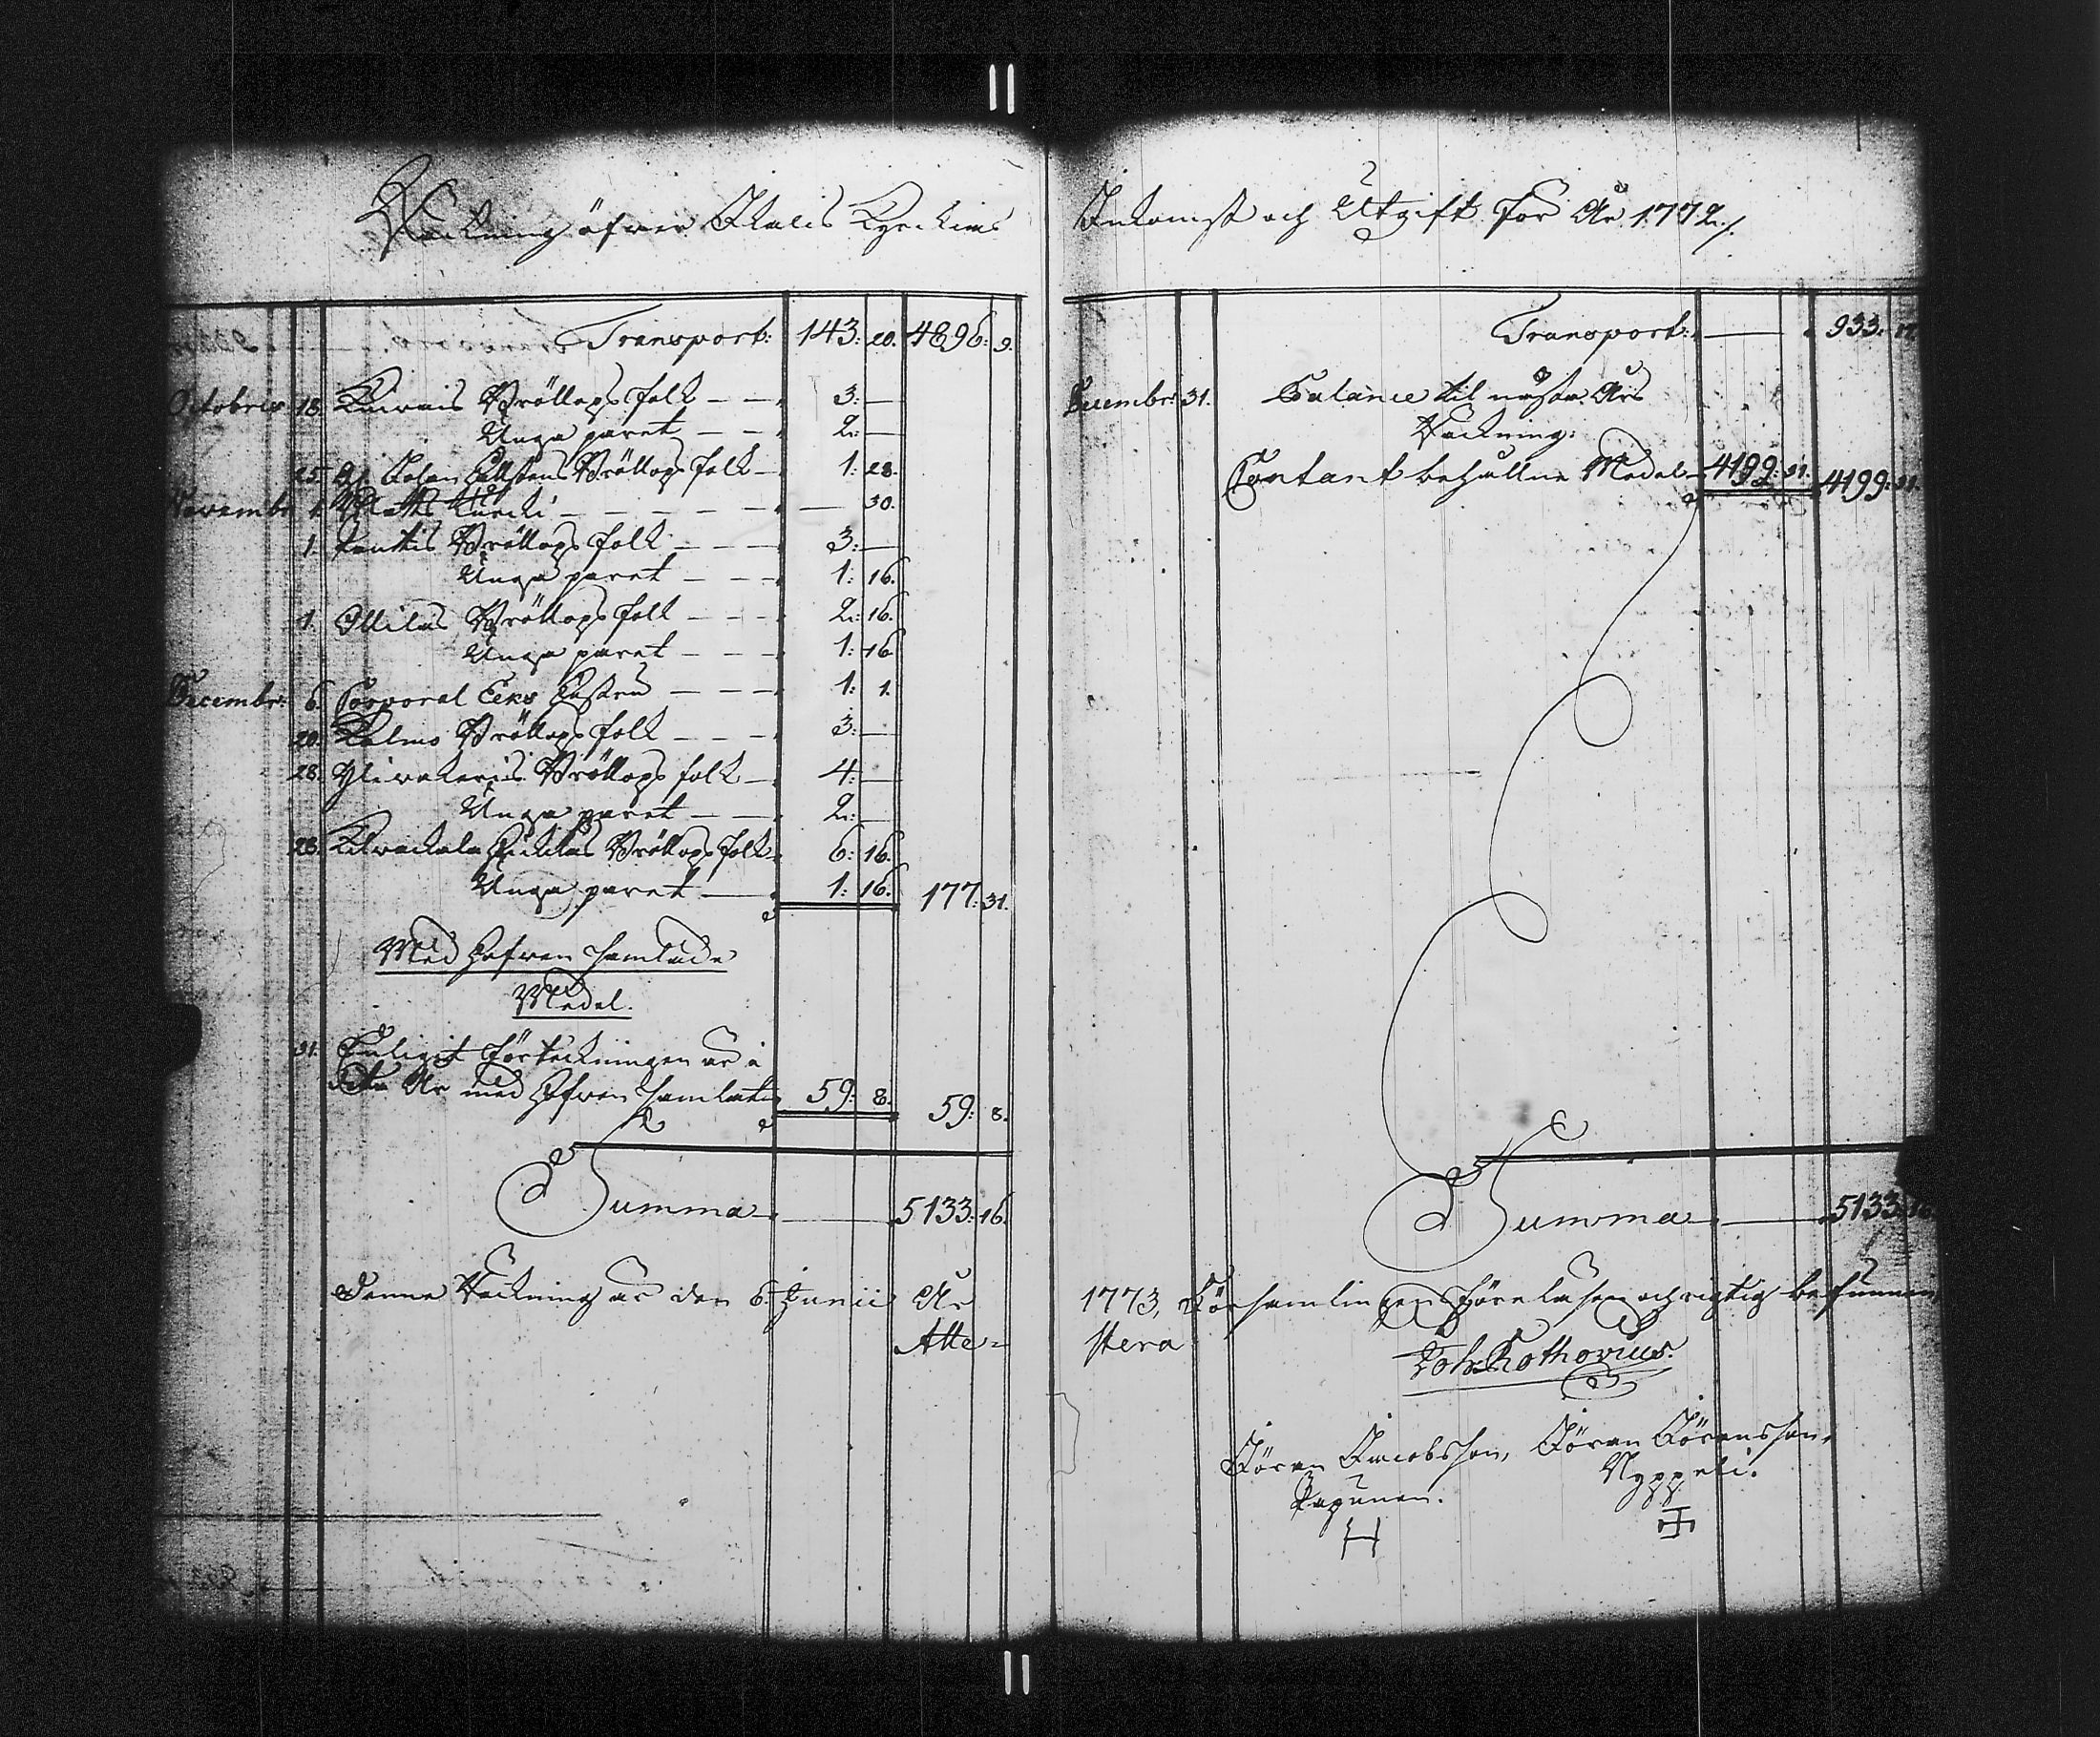 Räkning öfwer Italis Kyrckias
Transport: 143: 20. 4896: 9.
Octobris 18. Bröllops folk — — 3: —
Unga paret — — 2: —
25. Bröllops folk — 1: 28.
Novembr: 1. Matts — — — — 30.
1. Bröllops folk — — — 3: —
Unga paret — — — 1: 16.
1. Ollilas Bröllops folk — — — 2: 16.
Unga paret — — — 1: 16.
Decembr: 6. Corporal Eeks Enkia — — — 1: 1.
20. Kalmo Bröllops folk — — — 3: —
28. Bröllops folk — 4: —
Unga paret — — 2: —
28. Bröllops folk 6: 16.
Unga paret — 1: 16. 177: 31.
Med Håfwen samlade
Medel.
31. Enligit Förteckningen är i
detta År med Håfwen samlat 59: 8. 59: 8.
Summa — 5133: 16.
Denna Räkning är den 6. Junii År
Atte=
Inkomst och Utgift för År 1772./.
Transport: — 933: 17.
Decembr: 31. Balance til nästa Års
Räkning:
Contant behållne Medel 4199: 31. 4199: 31.
Summa — 5133: 16.
1773, Församlingen föreläsen och rigtig befunnen,
stera
Joh: Rothovius.
Jöran Jacobsson, Jöran Göransson,
Papunen. Nyppeli.
H